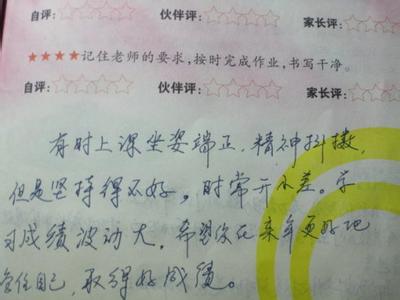 自评:☆☆☆☆☆ 伙伴评:☆☆☆☆☆ 家长评:☆☆
★★★★记住老师的要求,按时完成作业,书写干净。
自评:☆☆☆☆☆ 伙伴评:☆☆☆☆☆ 家长评:☆☆
有时上课坐姿端正,精神抖擞,
但是坚持得不好。时常开小差。学
习成绩波动大,希望你在来年更好地
管住自己,取得好成绩。